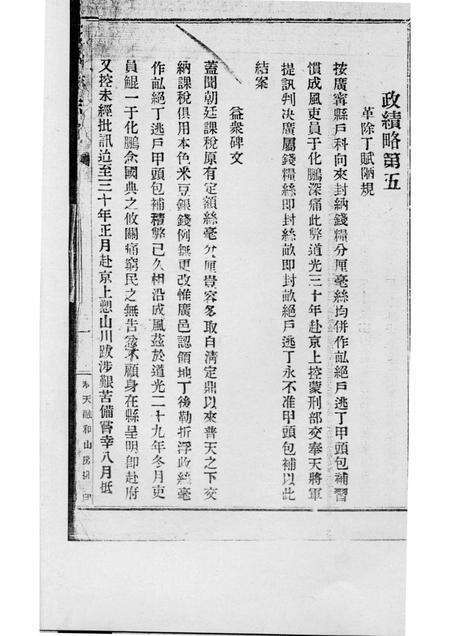 政績略第五
革除丁賦陋規
按廣甯縣戶科向來封納錢糧分厘毫絲均併作畝絕戶逃丁甲頭包補習
慣成風吏員于化鵬深痛此弊道光三十年赴京上控蒙刑部交奉天將軍
提訊判決廣屬錢糧絲即封絲畝即封畝絕戶逃丁永不准甲頭包補以此
結案
益衆碑文
蓋聞朝廷課稅原有定額絲毫分厘豈容多取自清定鼎以來普天之下交
納課稅俱用本色米豆銀錢例無更改惟廣邑認領地丁後勒折浮政絲毫
作畝絕丁逃戶甲頭包補積弊已久相沿成風茲於道光二十九年冬月吏
員鯤一于化鵬念國典之攸關痛窮民之無告不顧身在縣呈明卽赴府
又控未經批訊迨至三十年正月赴京上愬山川跋涉艱苦備嘗幸八月抵
奉天融和山房
印